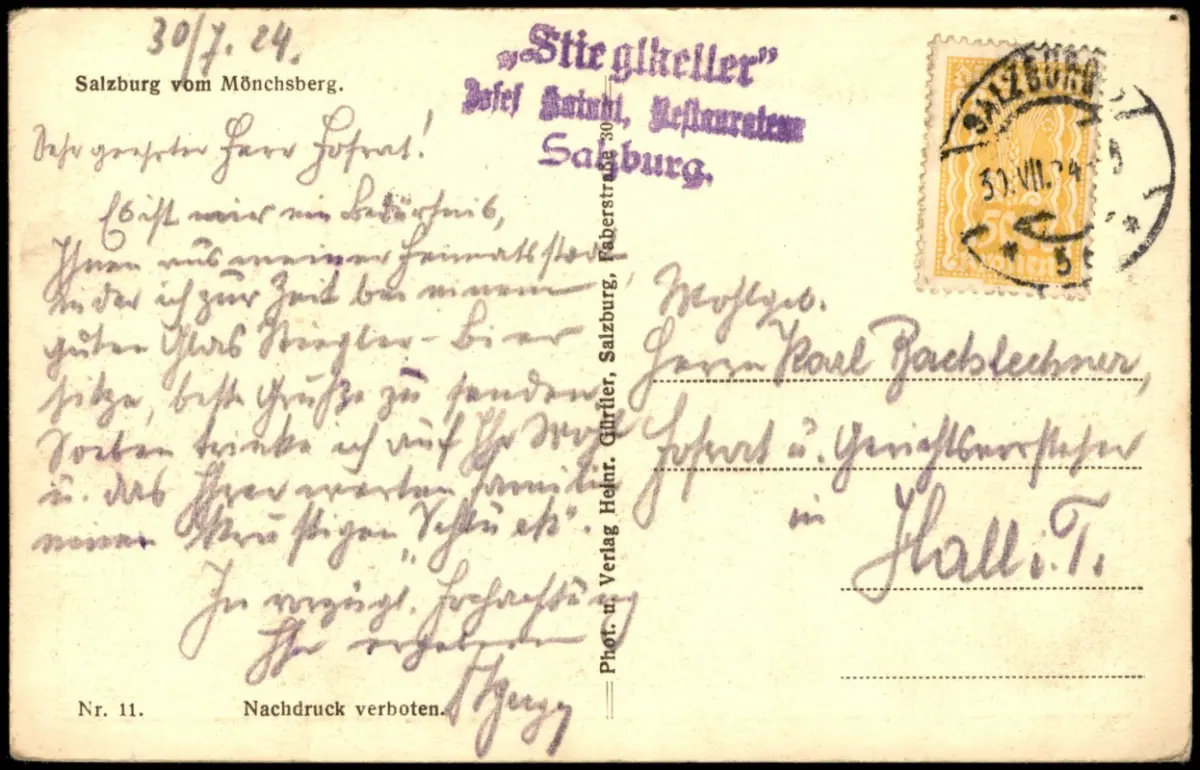 30/7. 24.
Salzburg vom Mönchsberg.
„Stieglkeller”
Josef Restaurateur
Salzburg.
SALZBURG
30.VII.24
5
Kronen
Sehr geehrter Herr Hofrat!
Es ist mir ein Bedürfnis,
Ihnen aus meiner Heimatsstadt
in der ich zur Zeit bei einem
guten Glas Stiegler-Bier
sitze, beste Grüße zu senden
Soeben trinke ich auf Ihr Wohl
u. das Ihrer werten Familie
einen kräftigen „Schluck”.
In vorzügl. Hochachtung
Ihr ergebener
Nr. 11.
Nachdruck verboten.
Phot. u. Verlag Heinr. Gürtler, Salzburg, Faberstraße 30
Wohlgeb.
Herrn Karl Bachlechner,
Hofrat u. Gerichtsvorsteher
in
Hall i. T.